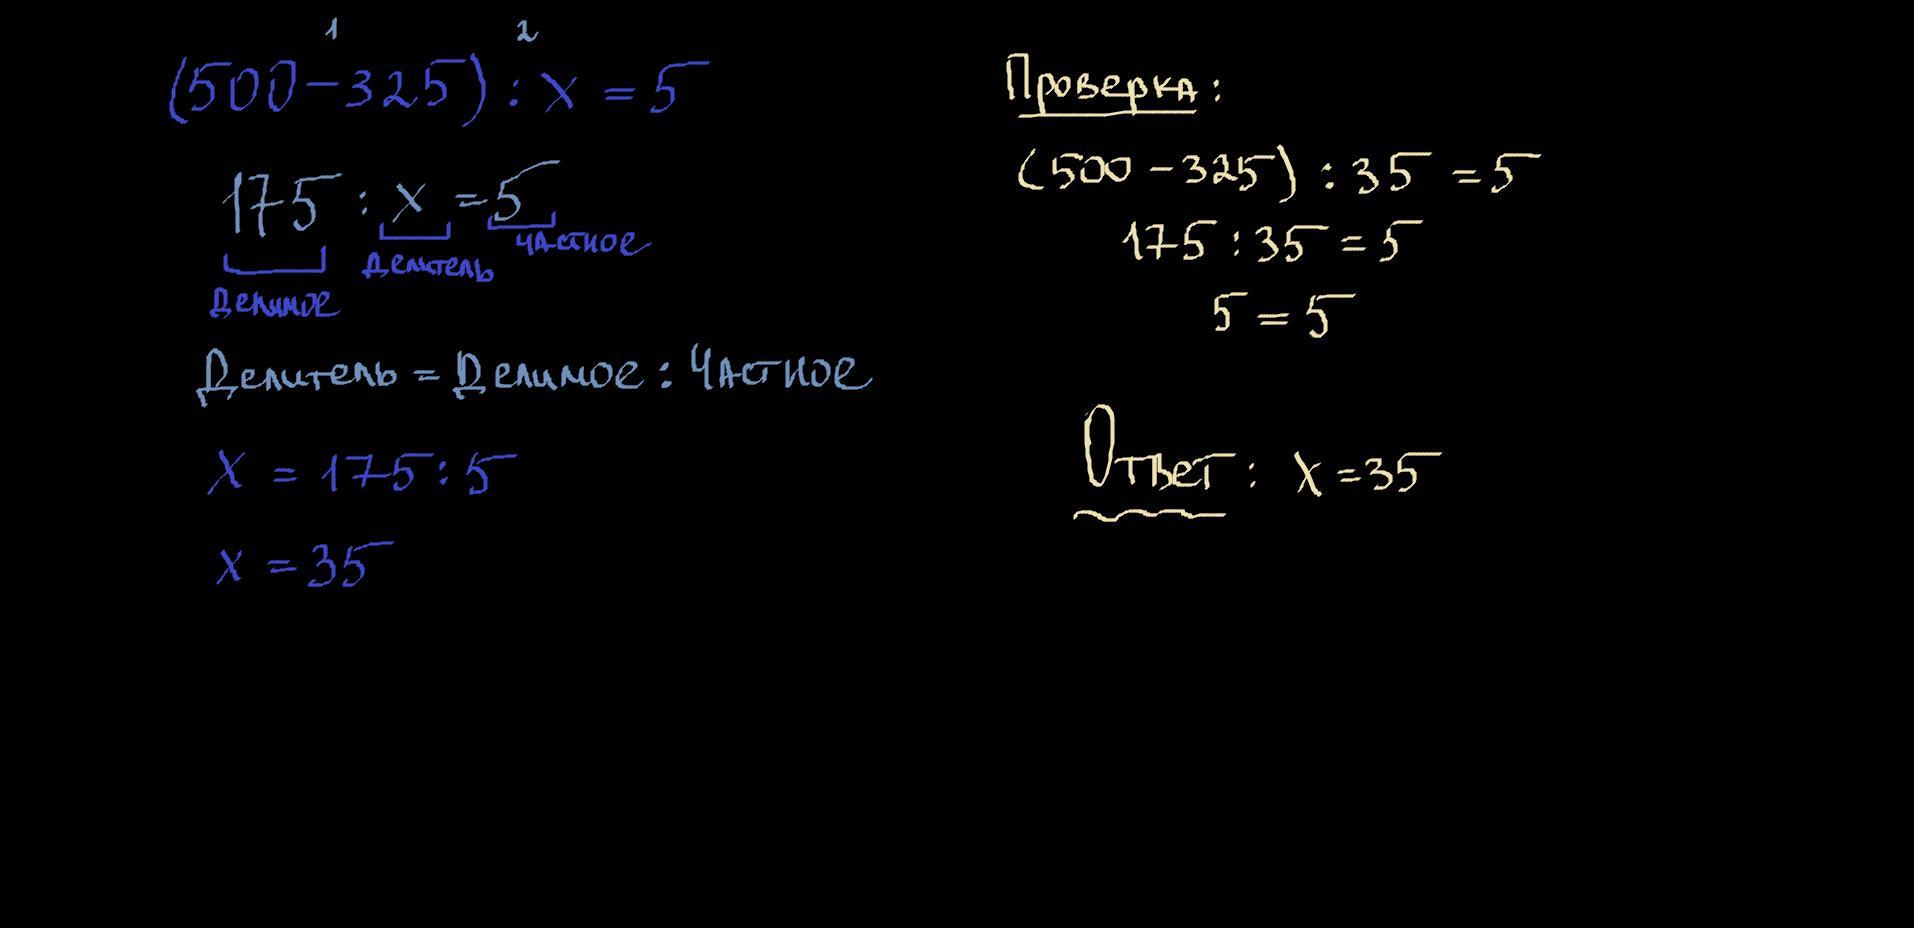 1 2
(500 - 325) : x = 5
175 : x = 5
частное
Делитель
Делимое
Делитель = Делимое : Частное
x = 175 : 5
x = 35
Проверка:
(500 - 325) : 35 = 5
175 : 35 = 5
5 = 5
Ответ: x = 35